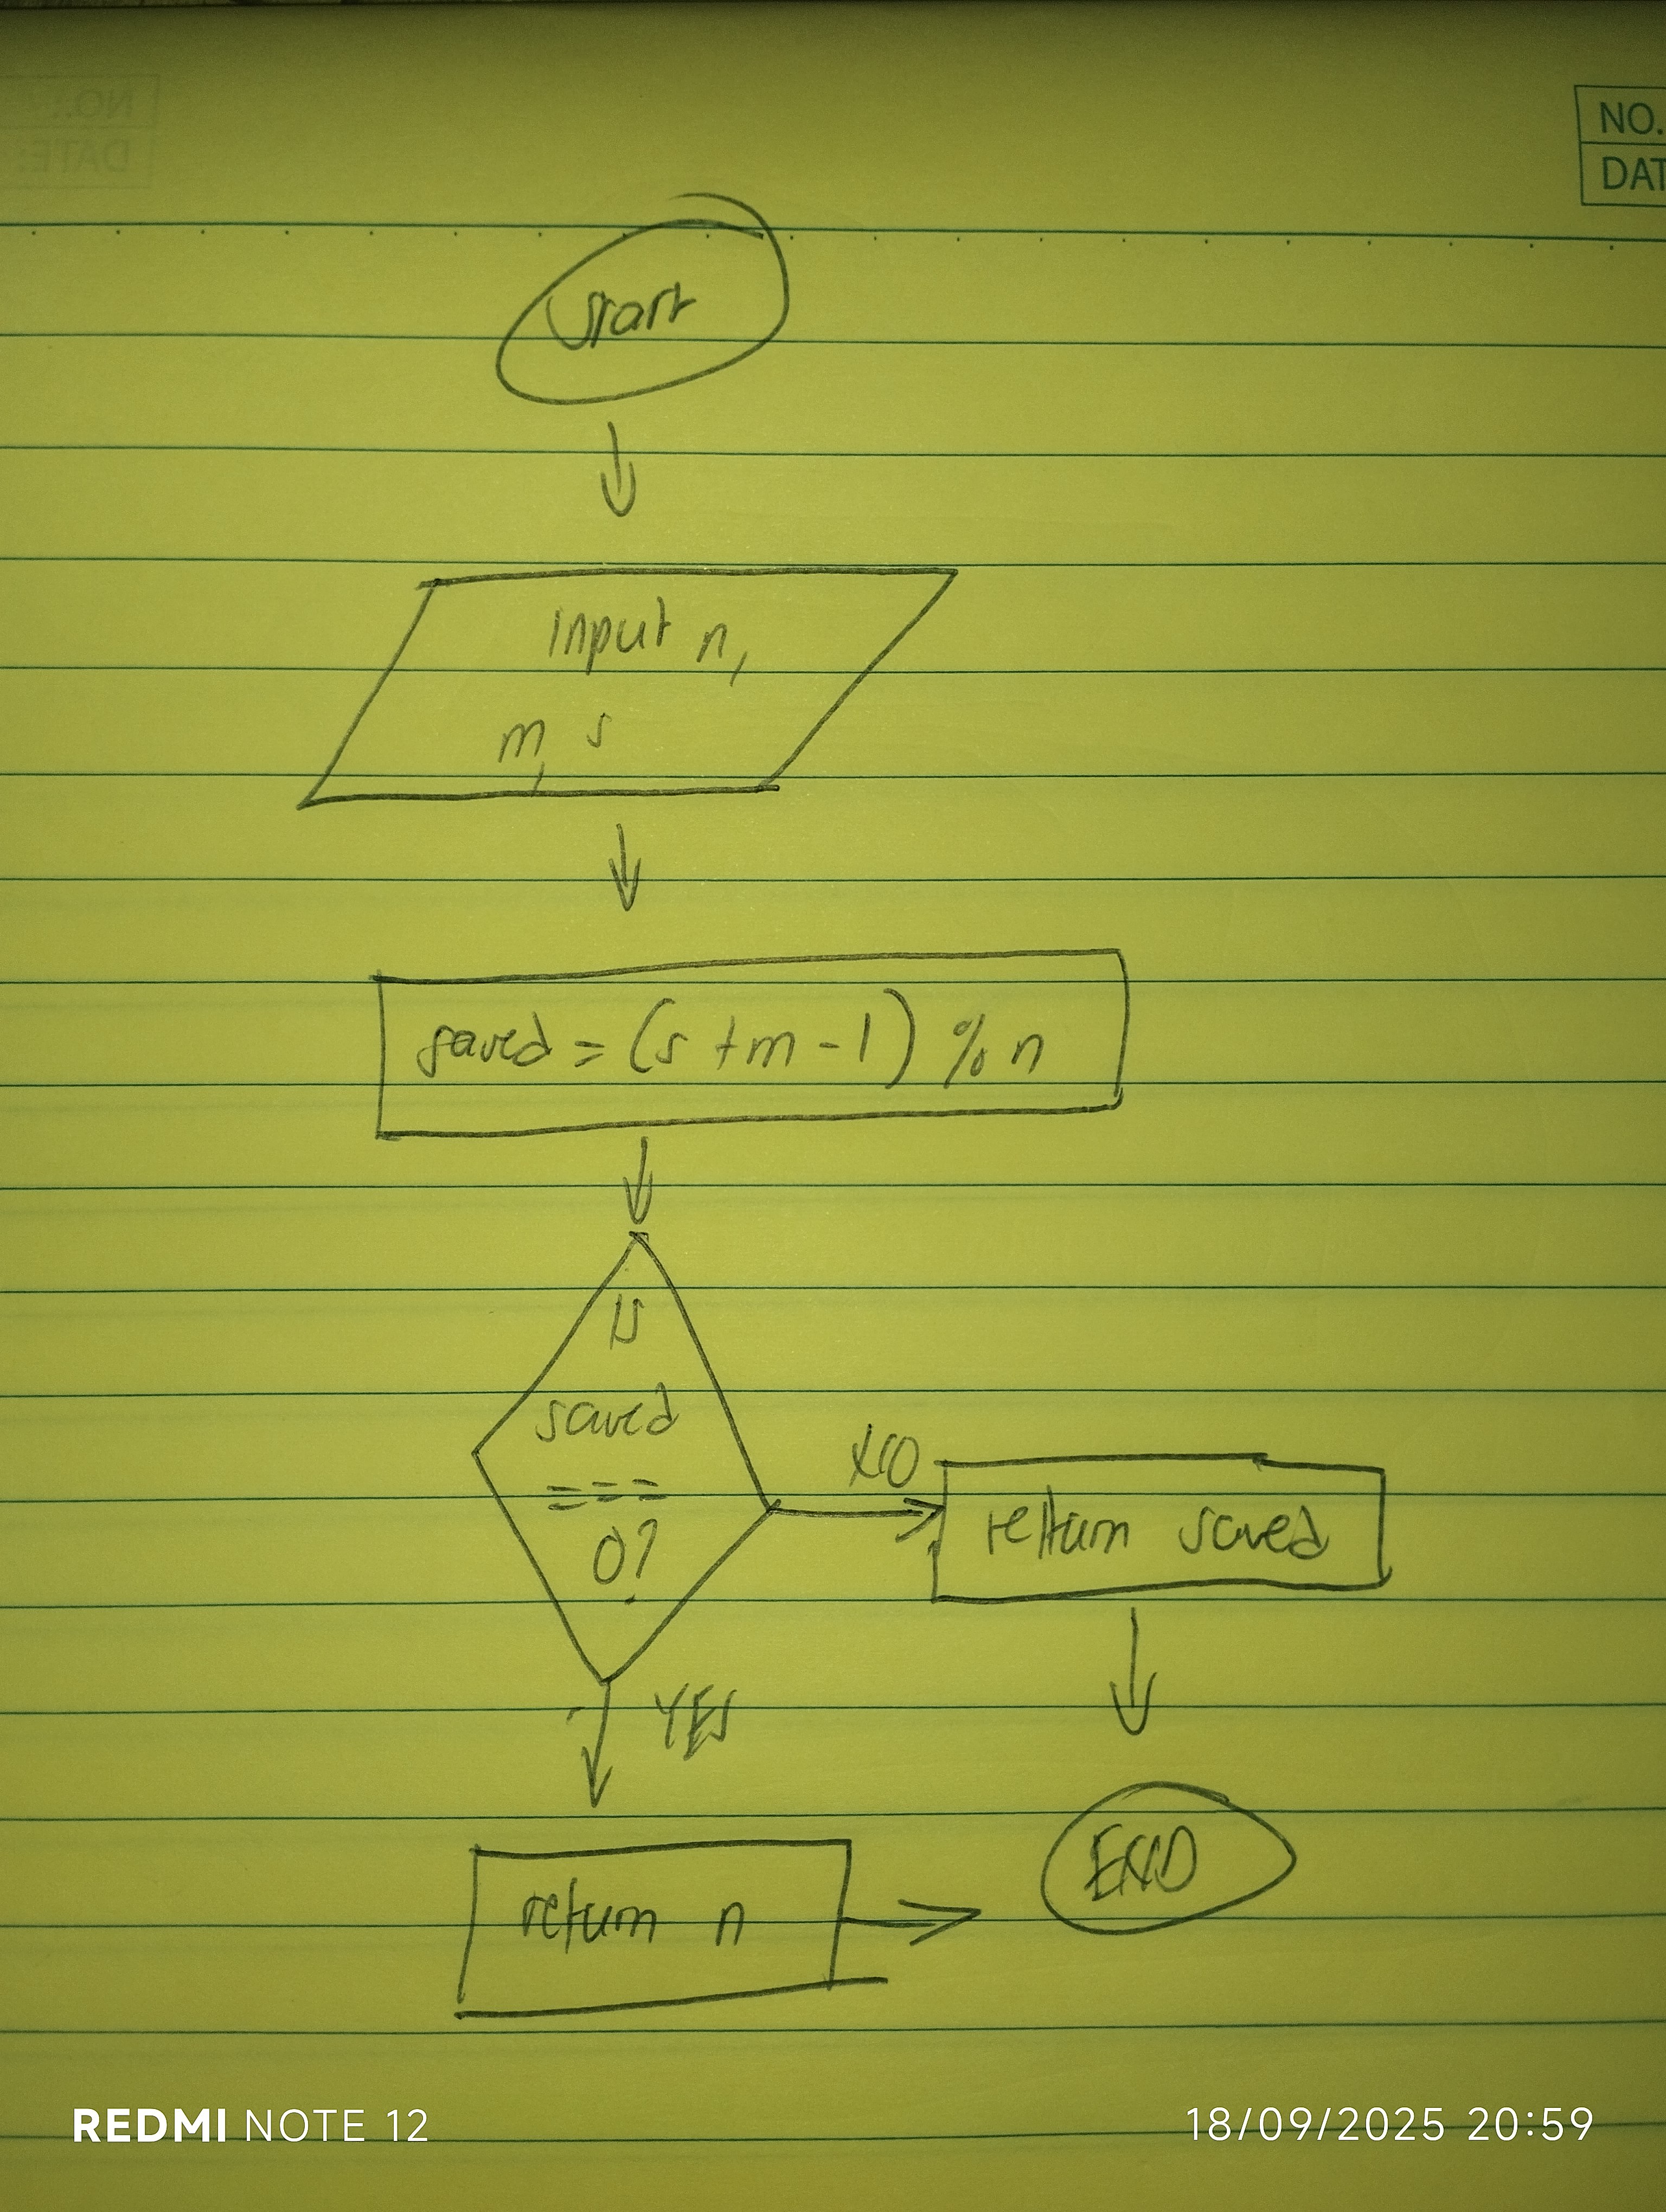 NO.
DAT
start
input n,
m, s
saved = (s + m - 1) % n
is
saved
===
0?
NO
return saved
YES
return n
END
REDMI NOTE 12
18/09/2025 20:59